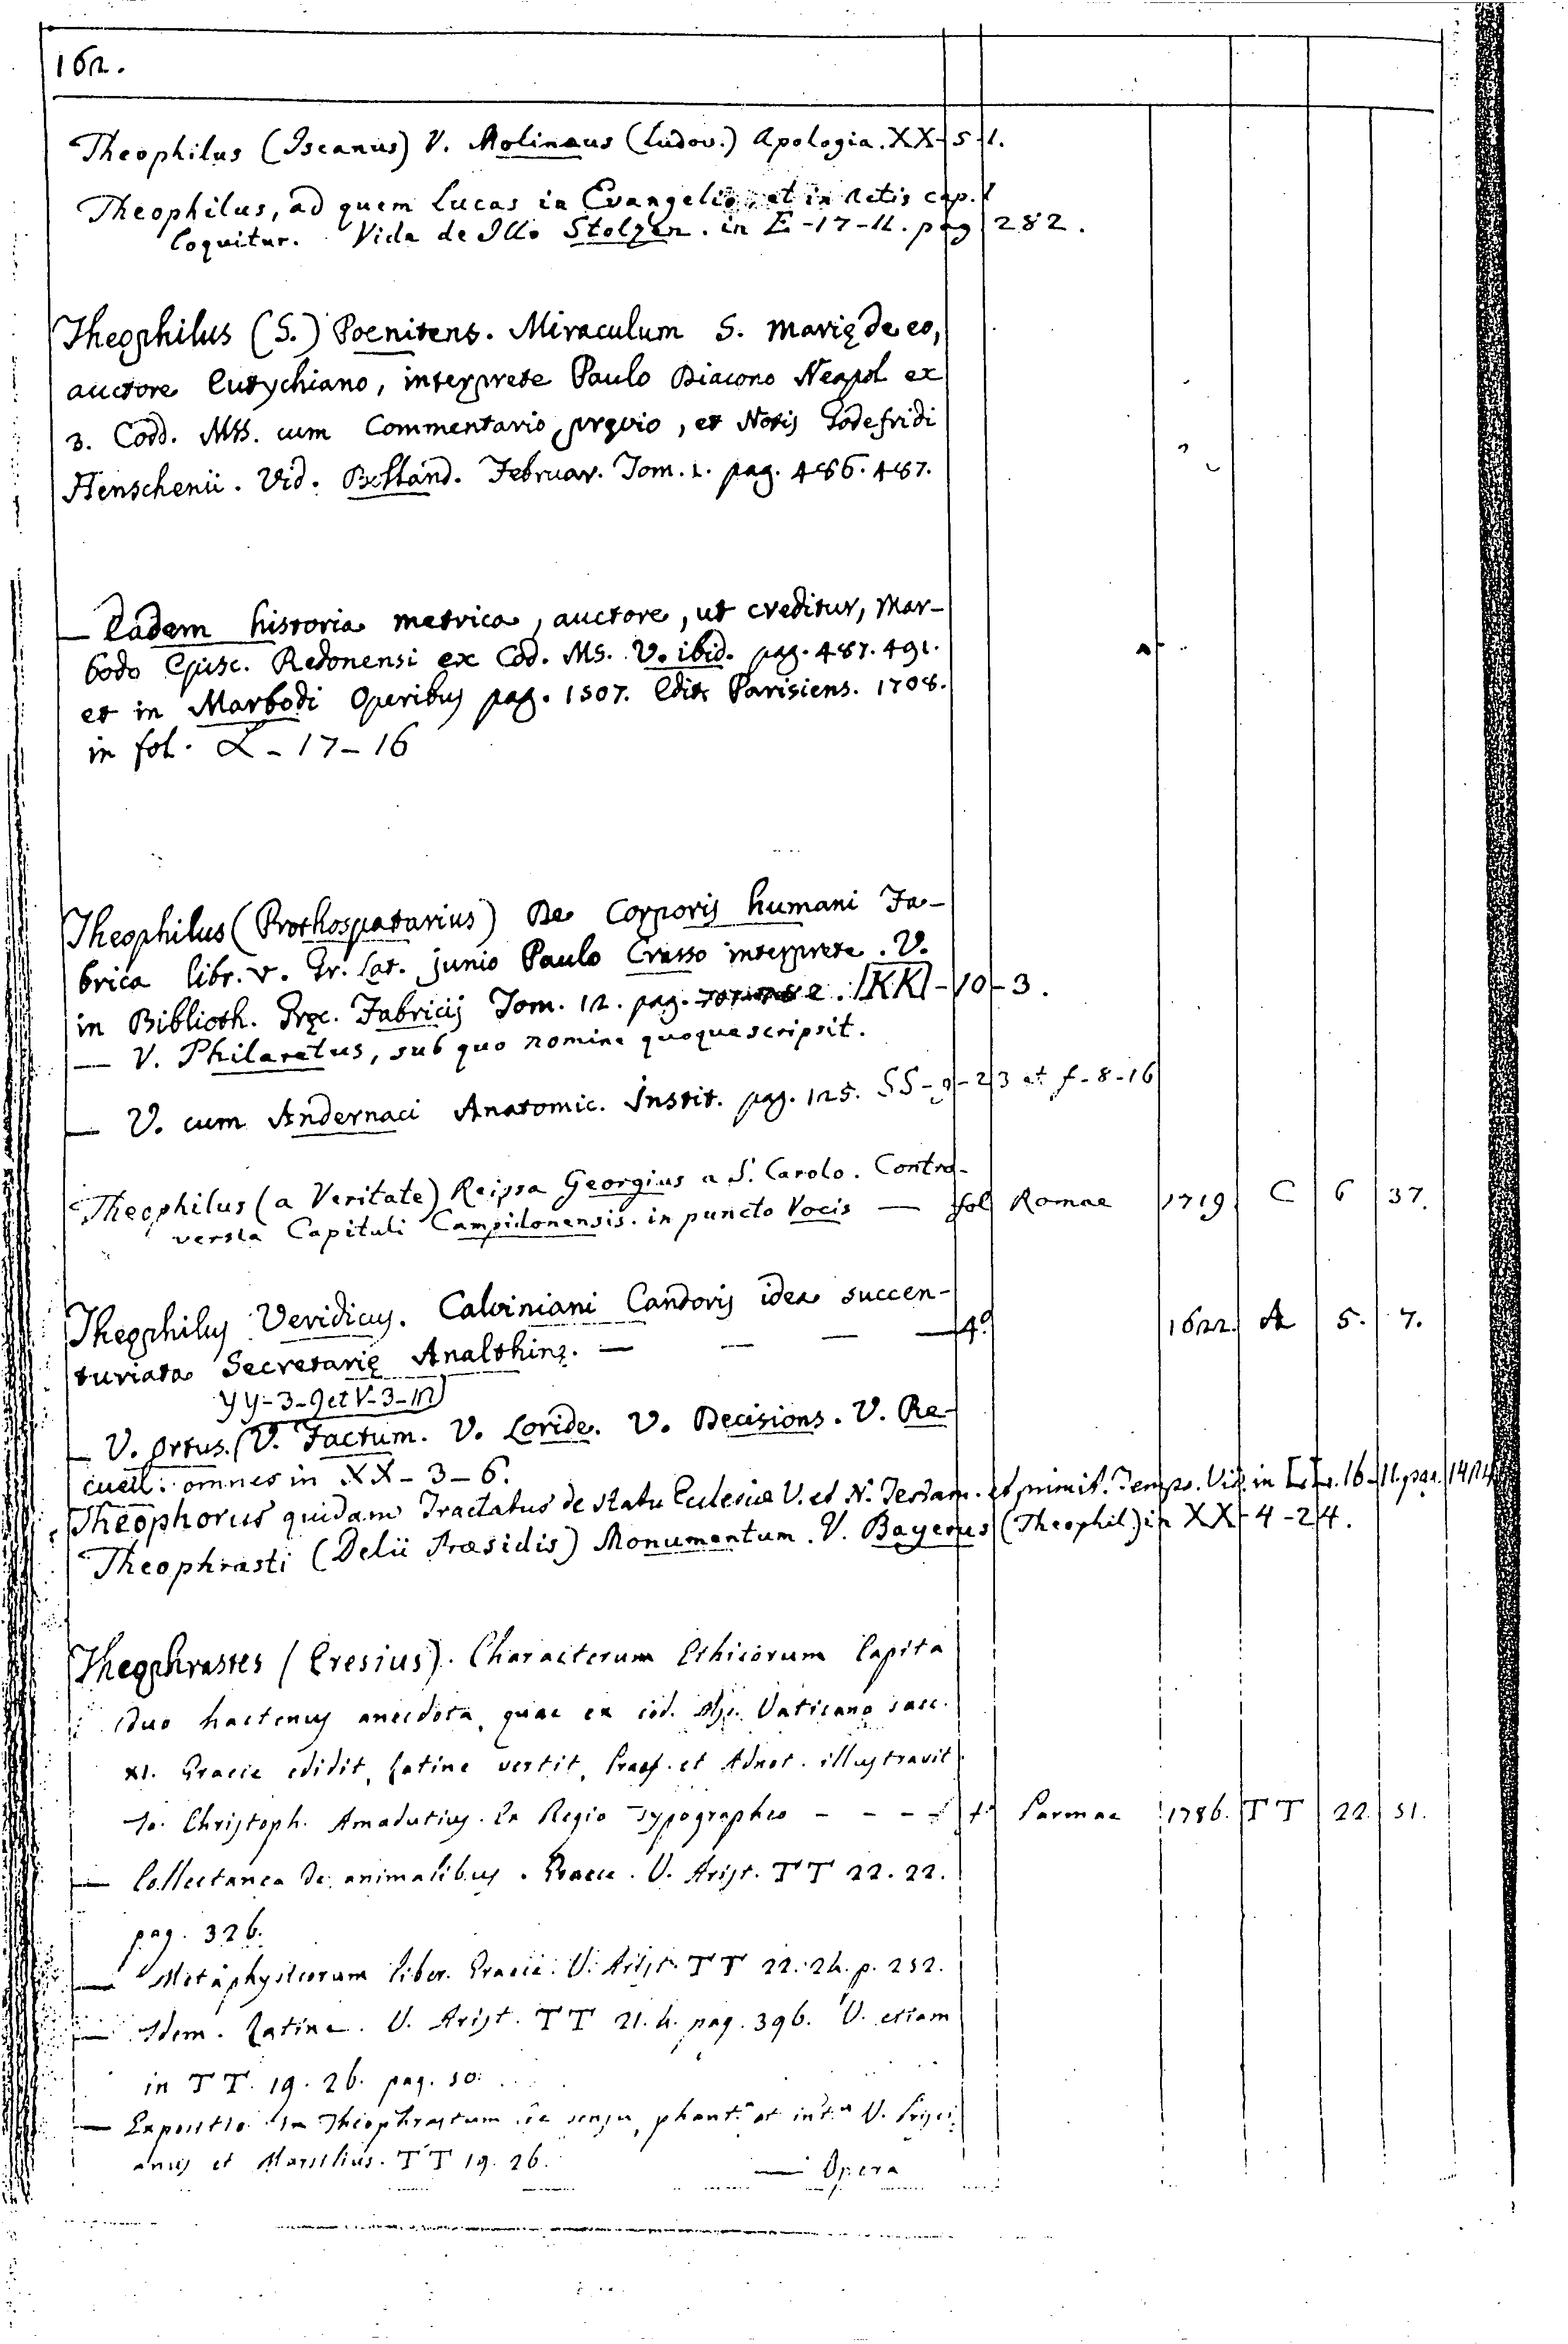 162.
Theophilus (Iscanus) V. Molinaus (Ludov.) Apologia. XX-5-1.
Theophilus, ad quem Lucas in Evangelio et in Actis cap. 1
loquitur. Vide de Illo Stolzen. in E-17-11. pag 282.
Theophilus (S.) Poenitens. Miraculum S. Marię de eo,
auctore Eutychiano, interprete Paulo Diacono Neapol ex
3. Codd. Mss. cum Commentario pręvio, et Notis Godefridi
Henschenii. Vid. Bolland. Februar. Tom. 1. pag. 486. 487.
— Eadem historia metrica, auctore, ut creditur, Mar-
bodo Episc. Redonensi ex Cod. MS. V. ibid. pag. 487. 491.
et in Marbodi Operibus pag. 1507. Edit. Parisiens. 1708.
in fol. L-17-16
Theophilus (Prothospatarius) De Corporis humani Fa-
brica libr. V. Gr. Lat. junio Paulo Crasso interprete. V.
in Biblioth. Gręc. Fabricij Tom. 12. pag. 2. KK-10-3.
— V. Philaretus, sub quo nomine quoque scripsit.
— V. cum Andernaci Anatomic. Instit. pag. 125. SS-9-23 et f-8-16
Theophilus (a Veritate) Reipsa Georgius a S. Carolo. Contro-
versia Capituli Campidonensis. in puncto Vocis — fol Romae 1719 C 6 37.
Theophilus Veridicus. Calviniani Candoris idea succen-
turiata Secretarię Analthinę. — — — 4º 1622. A 5. 7.
YY-3-9 et V-3-12
— V. Ortus. V. Factum. V. Loride. V. Decisions. V. Re-
cueil: omnes in XX-3-6.
Theophorus quidam Tractatus de statu Eclesiae V. et N. Testam. et primit. Temps. Vid. in 16-11. pag. 1424
Theophrasti (Delii Præsidis) Monumentum. V. Bayerus (Theophil.) in XX-4-24.
Theophrastes (Eresius). Characterum Ethicorum Capita
duo hactenus anecdota, quae ex cod. Ms. Vaticano saec.
XI. Graece edidit, Latine vertit, Praef. et Adnot. illustravit
Jo. Christoph. Amadutius. Ex Regio Typographeo - - - - 4. Parmae 1786. TT 22. 51.
— Collectanea de animalibus. Graece. V. Arist. TT 22. 22.
pag. 326.
— Metaphysicorum liber. Graece. V. Arist. TT 22. 24. p. 252.
— Idem. Latine. V. Arist. TT 21. 4. pag. 396. V. etiam
in TT. 19. 26. pag. 50.
— Expositio in Theophrastum de sensu, phant.ª et int.ª V. Prisci-
anus et Marsilius. TT 19. 26.
— Opera